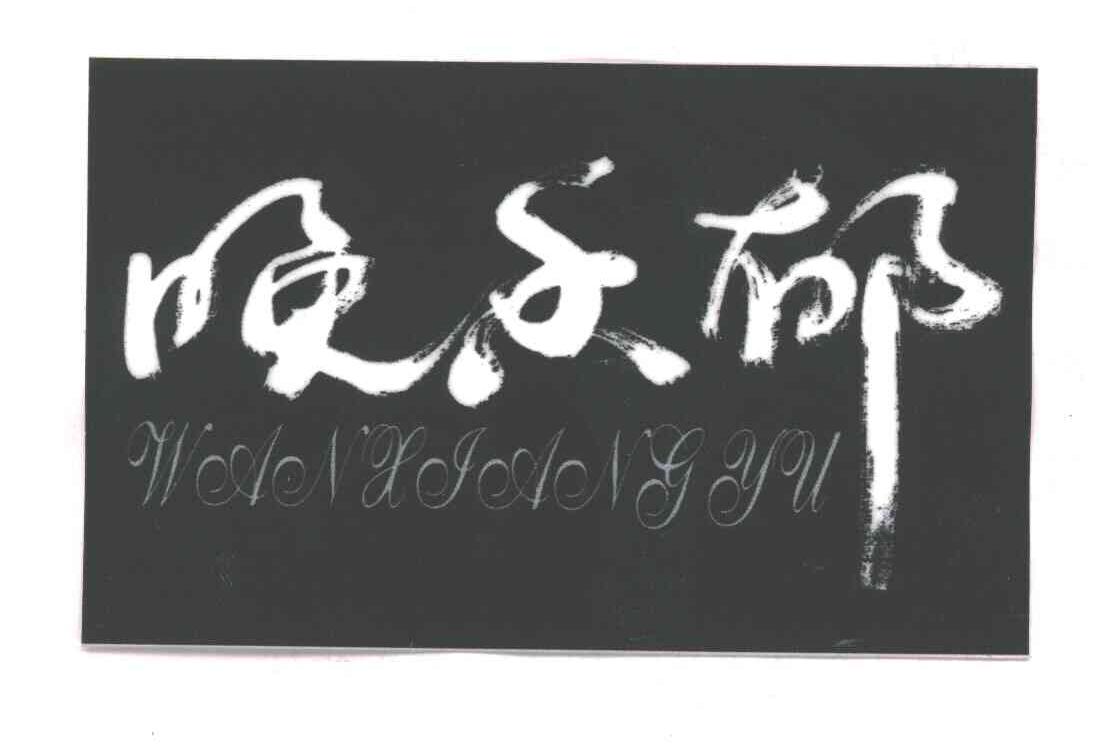 晚香郁
WANXIANG YU